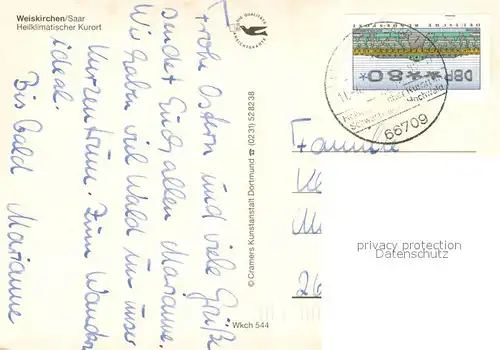 Weiskirchen/Saar
Heilklimatischer Kurort
Frohe Ostern und viele Grüße
sendet Euch allen Marianne.
Wir haben viel Wald um unser
Kurzentrum. Zum Wandern
ideal.
Bis bald Marianne
© Cramers Kunstanstalt Dortmund ☎ (0231) 528238
Wkch 544
DBP **80*
66709
Hochwald
Familie
26
privacy protection
Datenschutz